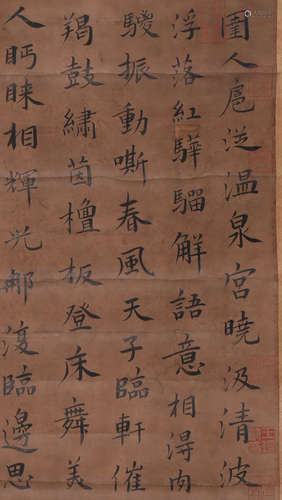 圉人扈從温泉宮曉汲清波
浮落紅驊騮解語意相得向
騣振動嘶春風天子臨軒催
羯鼓繡茵檀板登床舞美
人眄睞相輝光那復臨邊思